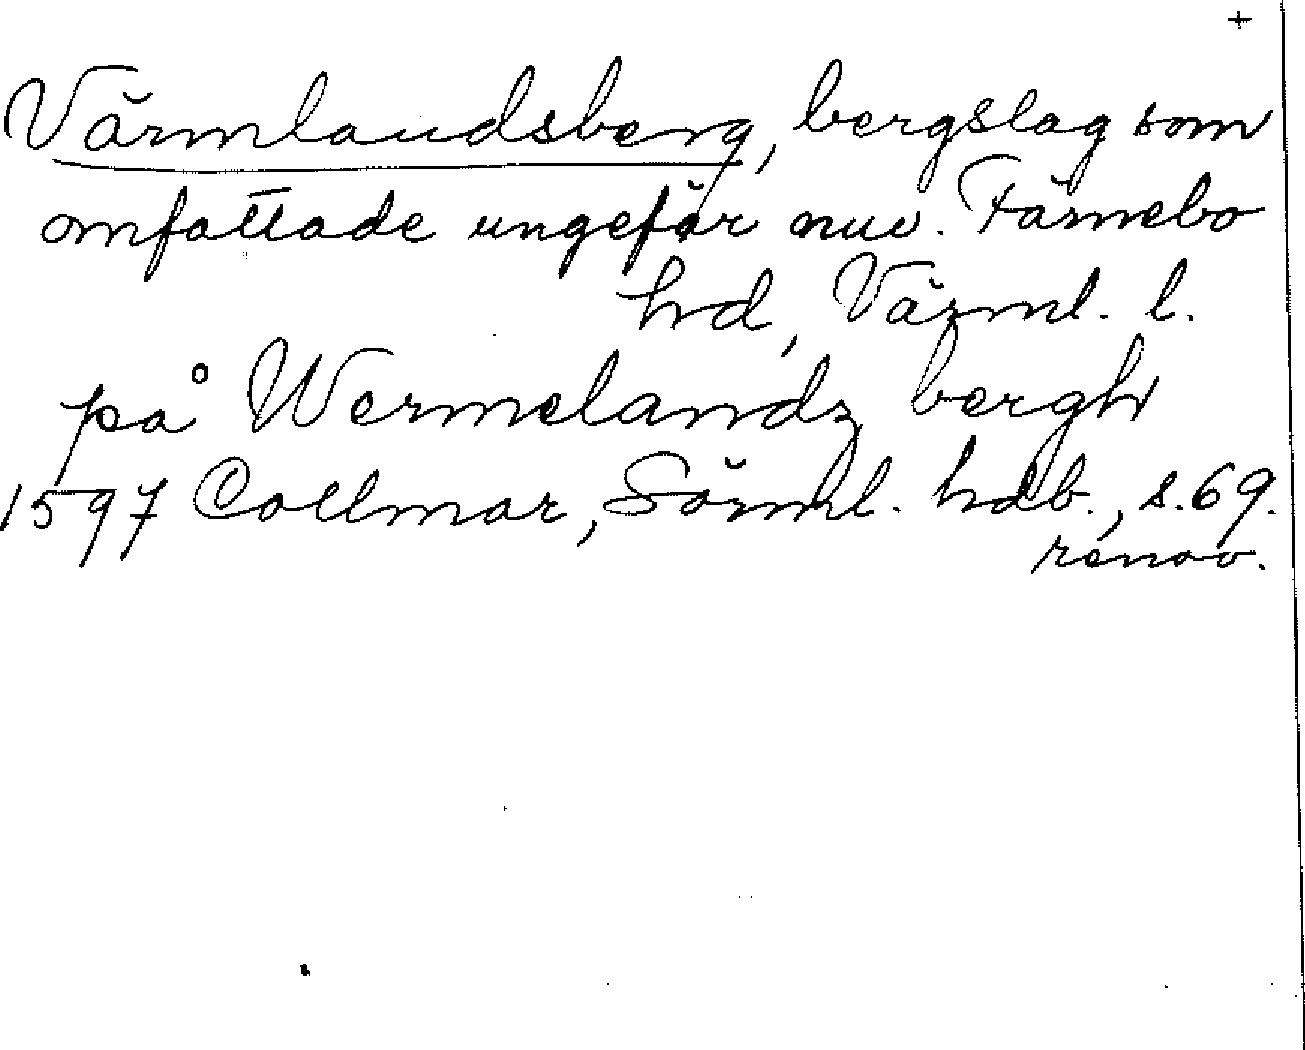 +
Värmlandsberg, bergslag som
omfattade ungefär nuv. Färnebo
hd, Värml. l.
på Wermelandz bergh
1597 Collmar, Sörml. hdb., s. 69.
renov.